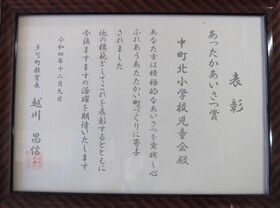 表彰
あったかあいさつ賞
中町北小学校児童会殿
あなた方は積極的なあいさつを実践し心
ふれあうあたたかい町づくりに寄与
されました
他の模範としてこれを表彰するとともに
今後ますますの活躍を期待いたします
令和四年十二月九日
多可町教育長 越川昌信